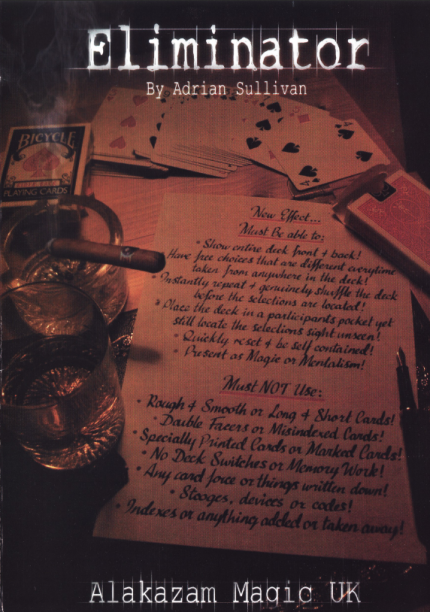 Eliminator
By Adrian Sullivan
BICYCLE
PLAYING CARDS
New Effect...
Must Be able to:
* Show entire deck front & back!
* Have free choices that are different everytime
taken from anywhere in the deck!
* Instantly repeat & genuinely shuffle the deck
before the selections are located!
* Place the deck in a participants pocket yet
still locate the selections sight unseen!
* Quickly reset & be self contained!
* Present as Magic or Mentalism!
Must NOT Use:
* Rough & Smooth or Long & Short Cards!
* Double Facers or Misindexed Cards!
* Specially Printed Cards or Marked Cards!
* No Deck Switches or Memory Work!
* Any card force or things written down!
* Stooges, devices or codes!
* Indexes or anything added or taken away!
Alakazam Magic UK